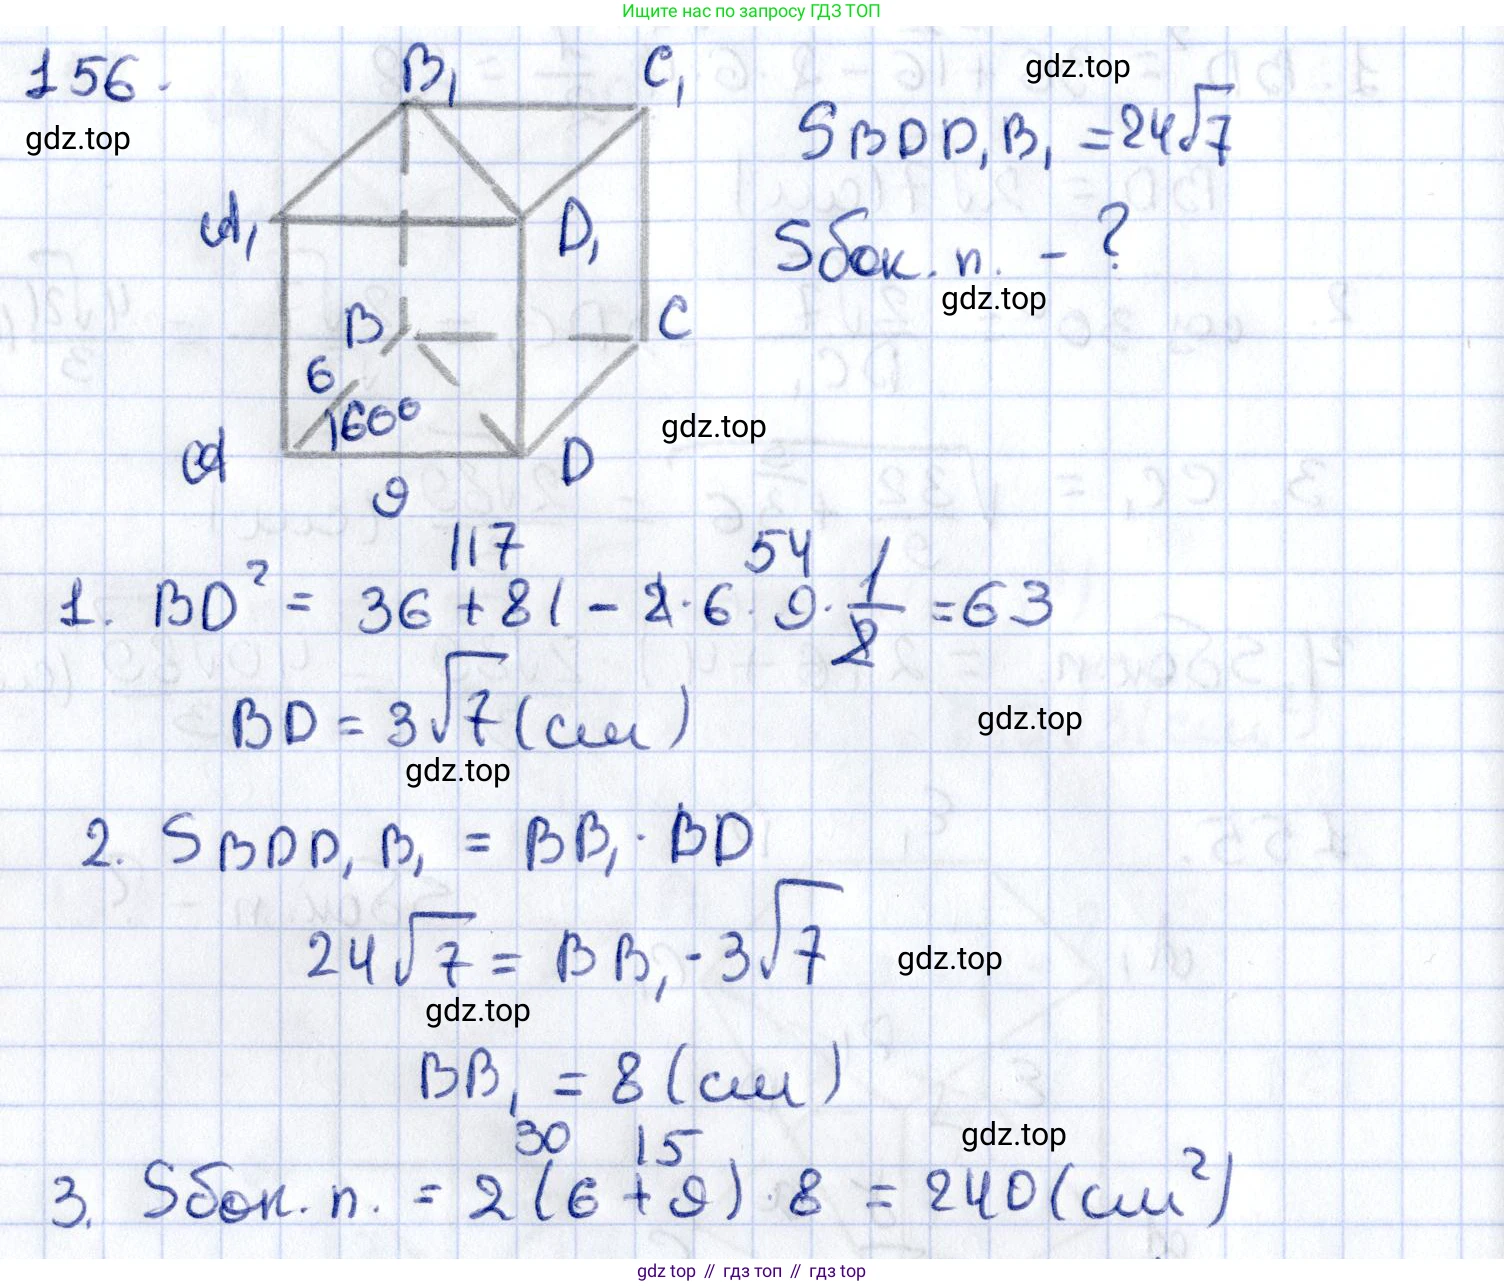 Ищите нас по запросу ГДЗ ТОП
156.
gdz.top
B₁
C₁
A₁
D₁
B
C
6
60°
A
D
9
gdz.top
S BDD₁B₁ = 24√7
Sбок. п. - ?
gdz.top
gdz.top
117
54
1. BD² = 36 + 81 - 2 · 6 · 9 · 1/2 = 63
BD = 3√7 (см)
gdz.top
gdz.top
2. S BDD₁B₁ = BB₁ · BD
24√7 = BB₁ · 3√7
gdz.top
gdz.top
BB₁ = 8 (см)
30
15
gdz.top
3. Sбок. п. = 2(6 + 9) · 8 = 240 (см²)
gdz top // гдз топ // гдз top